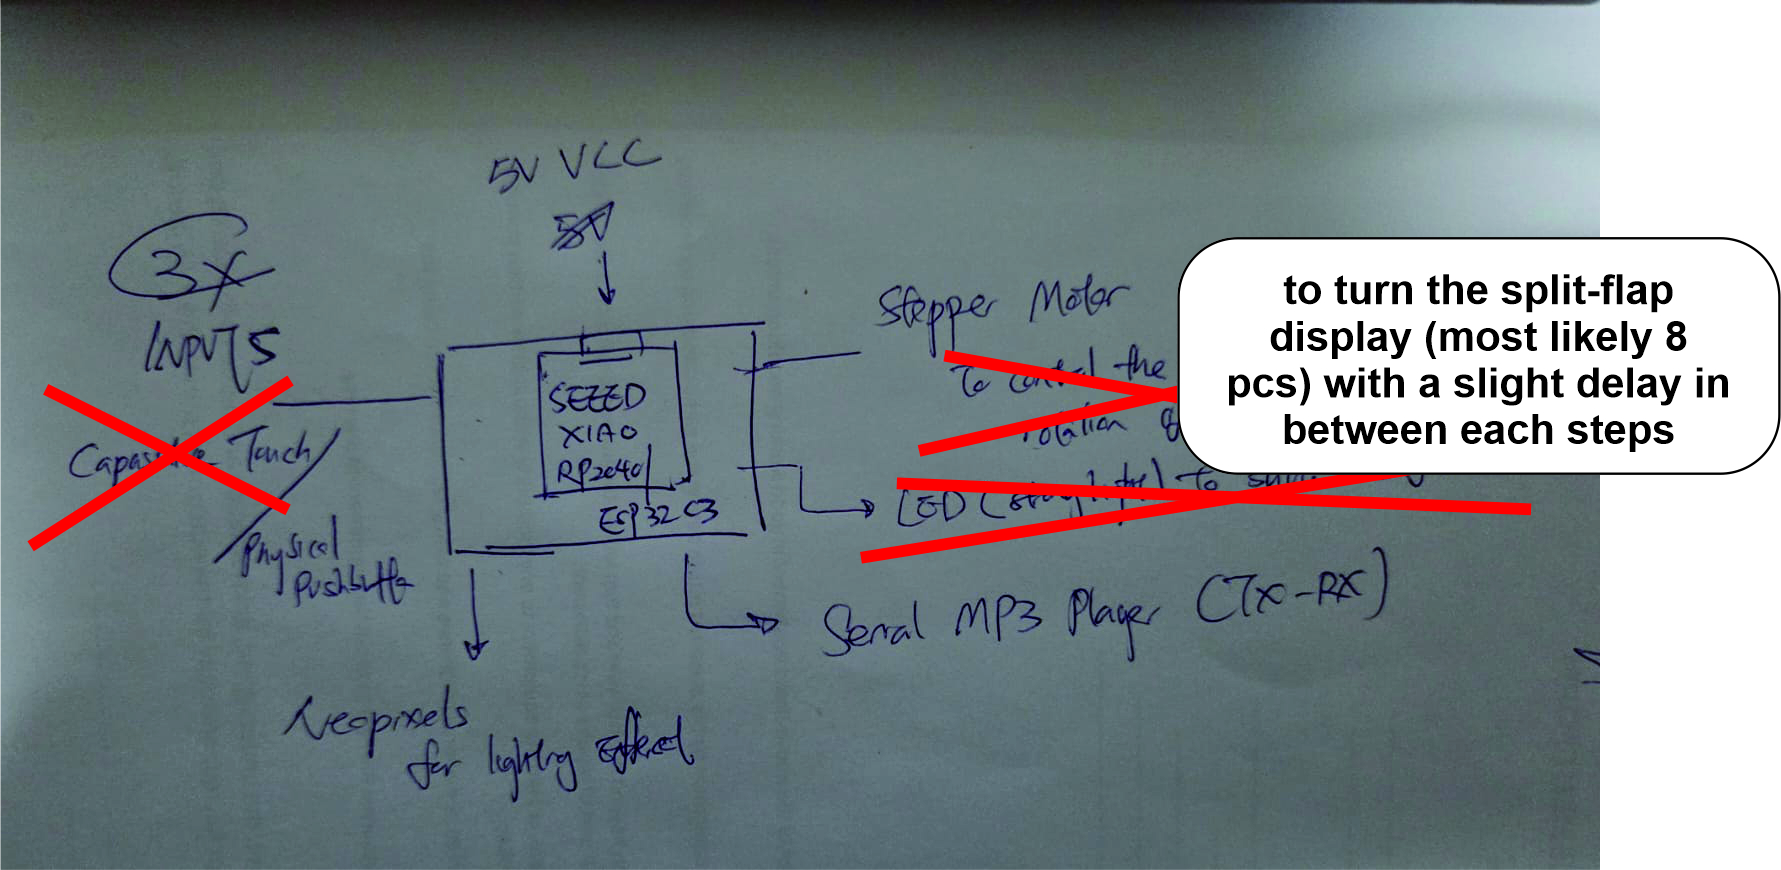 5V VCC
5V
3x
INPUTS
Capasitive Touch/
Physical
Pushbutto
SEEED
XIAO
RP2040/
ESP32C3
Stepper Motor
To control the
rotation
LED (
to
Serial MP3 Player (TX-RX)
Neopixels
for lighting effect
to turn the split-flap
display (most likely 8
pcs) with a slight delay in
between each steps